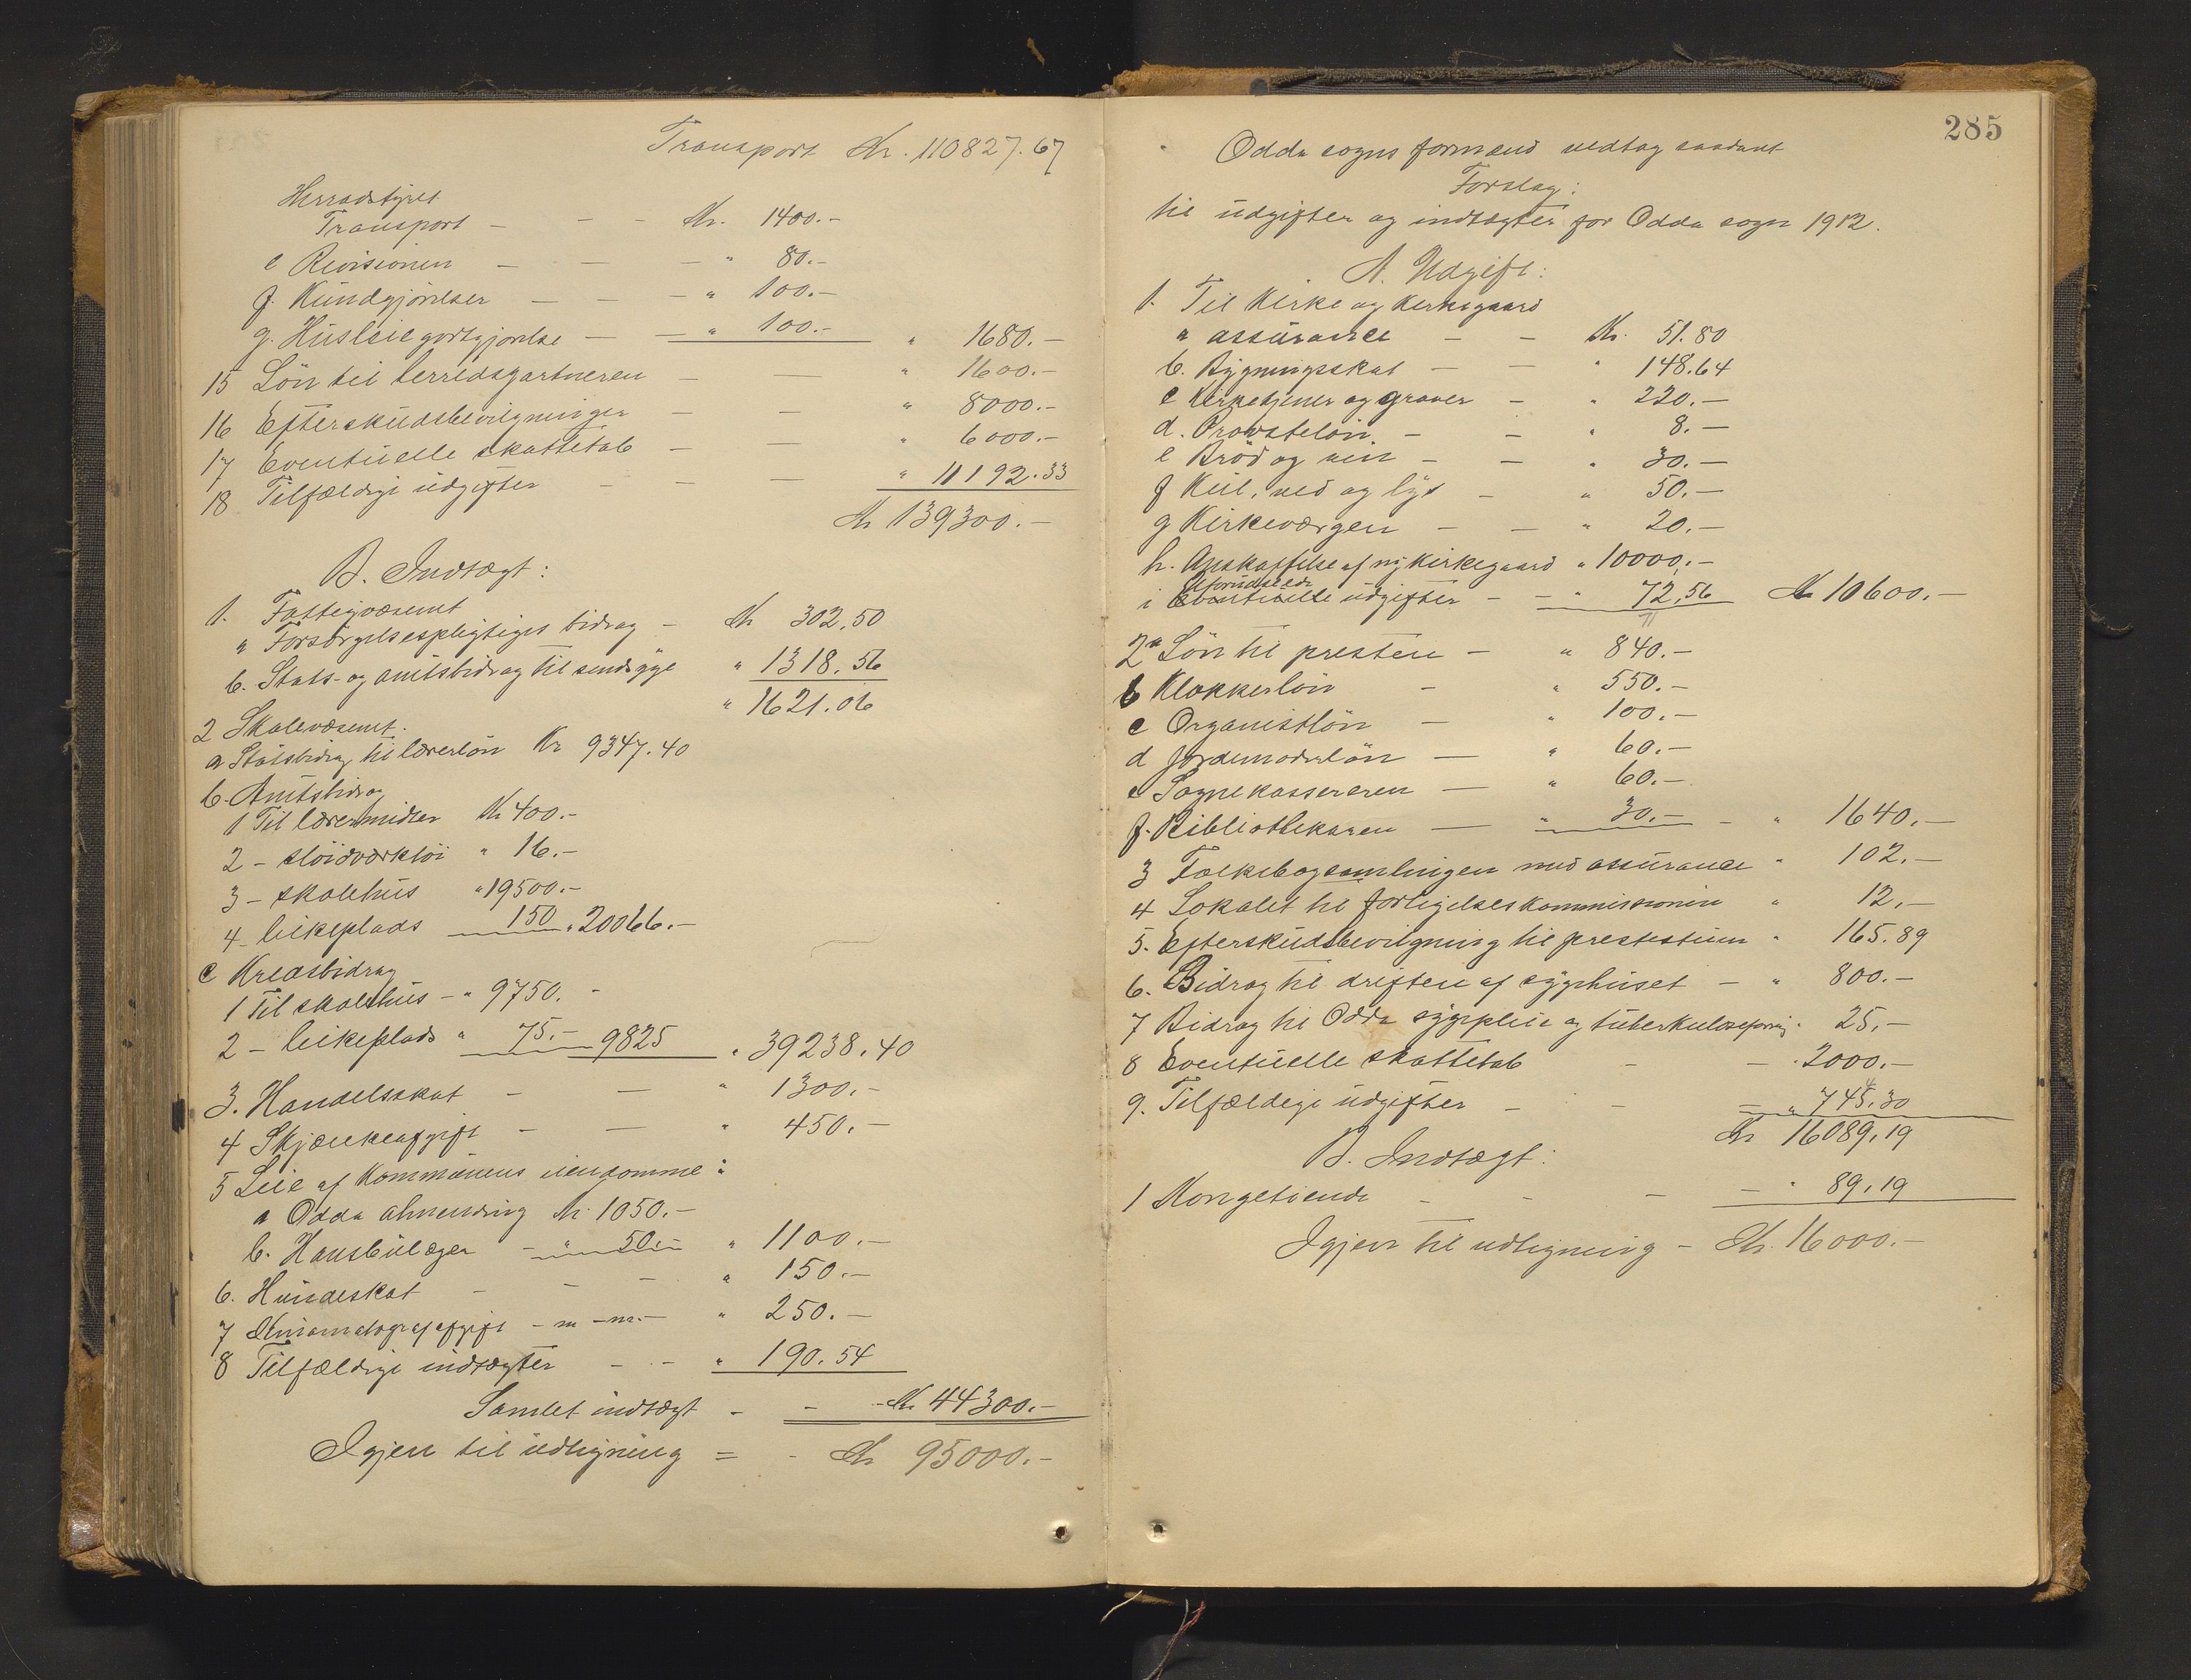 Transport Kr. 110827.67
Herradstyret
Transport - - - Kr. 1400.-
e Revisionen - - - " 80.-
f. Kundgjörelser - - - " 100.-
g. Husleiegodtgjörelse - - " 100.- " 1680.-
15 Lön til herredsgartneren - - " 1600.-
16 Efterskudsbevilgninger - - " 8000.-
17 Eventuelle skattetab - - " 6000.-
18 Tilfældige udgifter - - - " 11192.33
Kr 139300.-
B. Indtægt:
1. Fattigvæsenet
a Forsörgelsespligtiges bidrag - Kr 302,50
b. Stats- og amtsbidrag til sindsyge " 1318.56
" 1621.06
2 Skolevæsenet.
a Statsbidrag til lærerlön Kr 9347.40
b. Amtsbidrag
1 Til læremidler Kr 400.-
2 - slöidværktöi " 16.-
3 - skolehus " 19500.-
4 - leikeplads 150 " 20066.-
c Kredsbidrag
1 Til skolehus - " 9750. -
2 - leikeplads " 75.- 9825 " 39238.40
3. Handelsskat - - " 1300.-
4 Skjænkeafgift - - " 450.-
5 Leie af Kommunens eiendomme:
a Odda almending Kr. 1050.-
b. Hansbulægen - " 50.- " 1100.-
6. Hundeskat - - - " 150.-
7 Kinematografafgift - m - m. - " 250.-
8 Tilfældige indtægter - - - " 190.54
Samlet indtægt - - - Kr 44300.-
Igjen til udligning = - Kr 95000.-
285
Odda sogns formænd vedtog saadant
Forslag:
til udgifter og indtægter for Odda sogn 1912.
A. Udgift:
1. Til Kirke og Kirkegaard
a assurance - - Kr. 51.80
b. Bygningsskat - - " 148.64
c Kirketjener og graver - " 220.-
d. Provstelön. - - " 8.-
e Bröd og vin - - " 30.-
f Kul, ved og lys - " 50.-
g Kirkeværgen - - " 20.-
h. Anskaffelse af ny kirkegaard " 10000.-
Uforudseede
i Eventuelle udgifter - - " 72,56 Kr 10600.-
2a Lön til presten - " 840.-
b Klokkerlön - " 550.-
c Organistlön - " 100.-
d Jordemoderlön - " 60.-
e Sognekassereren - " 60.-
f. Bibliothekaren - " 30.- - " 1640.-
3 Folkebogsamlingen med assurance " 102.-
4 Lokalet til forligelseskommissionen " 12.-
5. Efterskudsbevilgning til prestestuen " 165.89
6. Bidrag til driften af sygehuset - " 800.-
7 Bidrag til Odda sygepleie og tuberkuloseforening " 25.-
8 Eventuelle skattetab - - " 2000.-
9. Tilfældige udgifter - - - " 745.30
Kr 16089.19
B. Indtægt:
1 Kongetiende - - - - " 89.19
Igjen til udligning - Kr. 16000.-